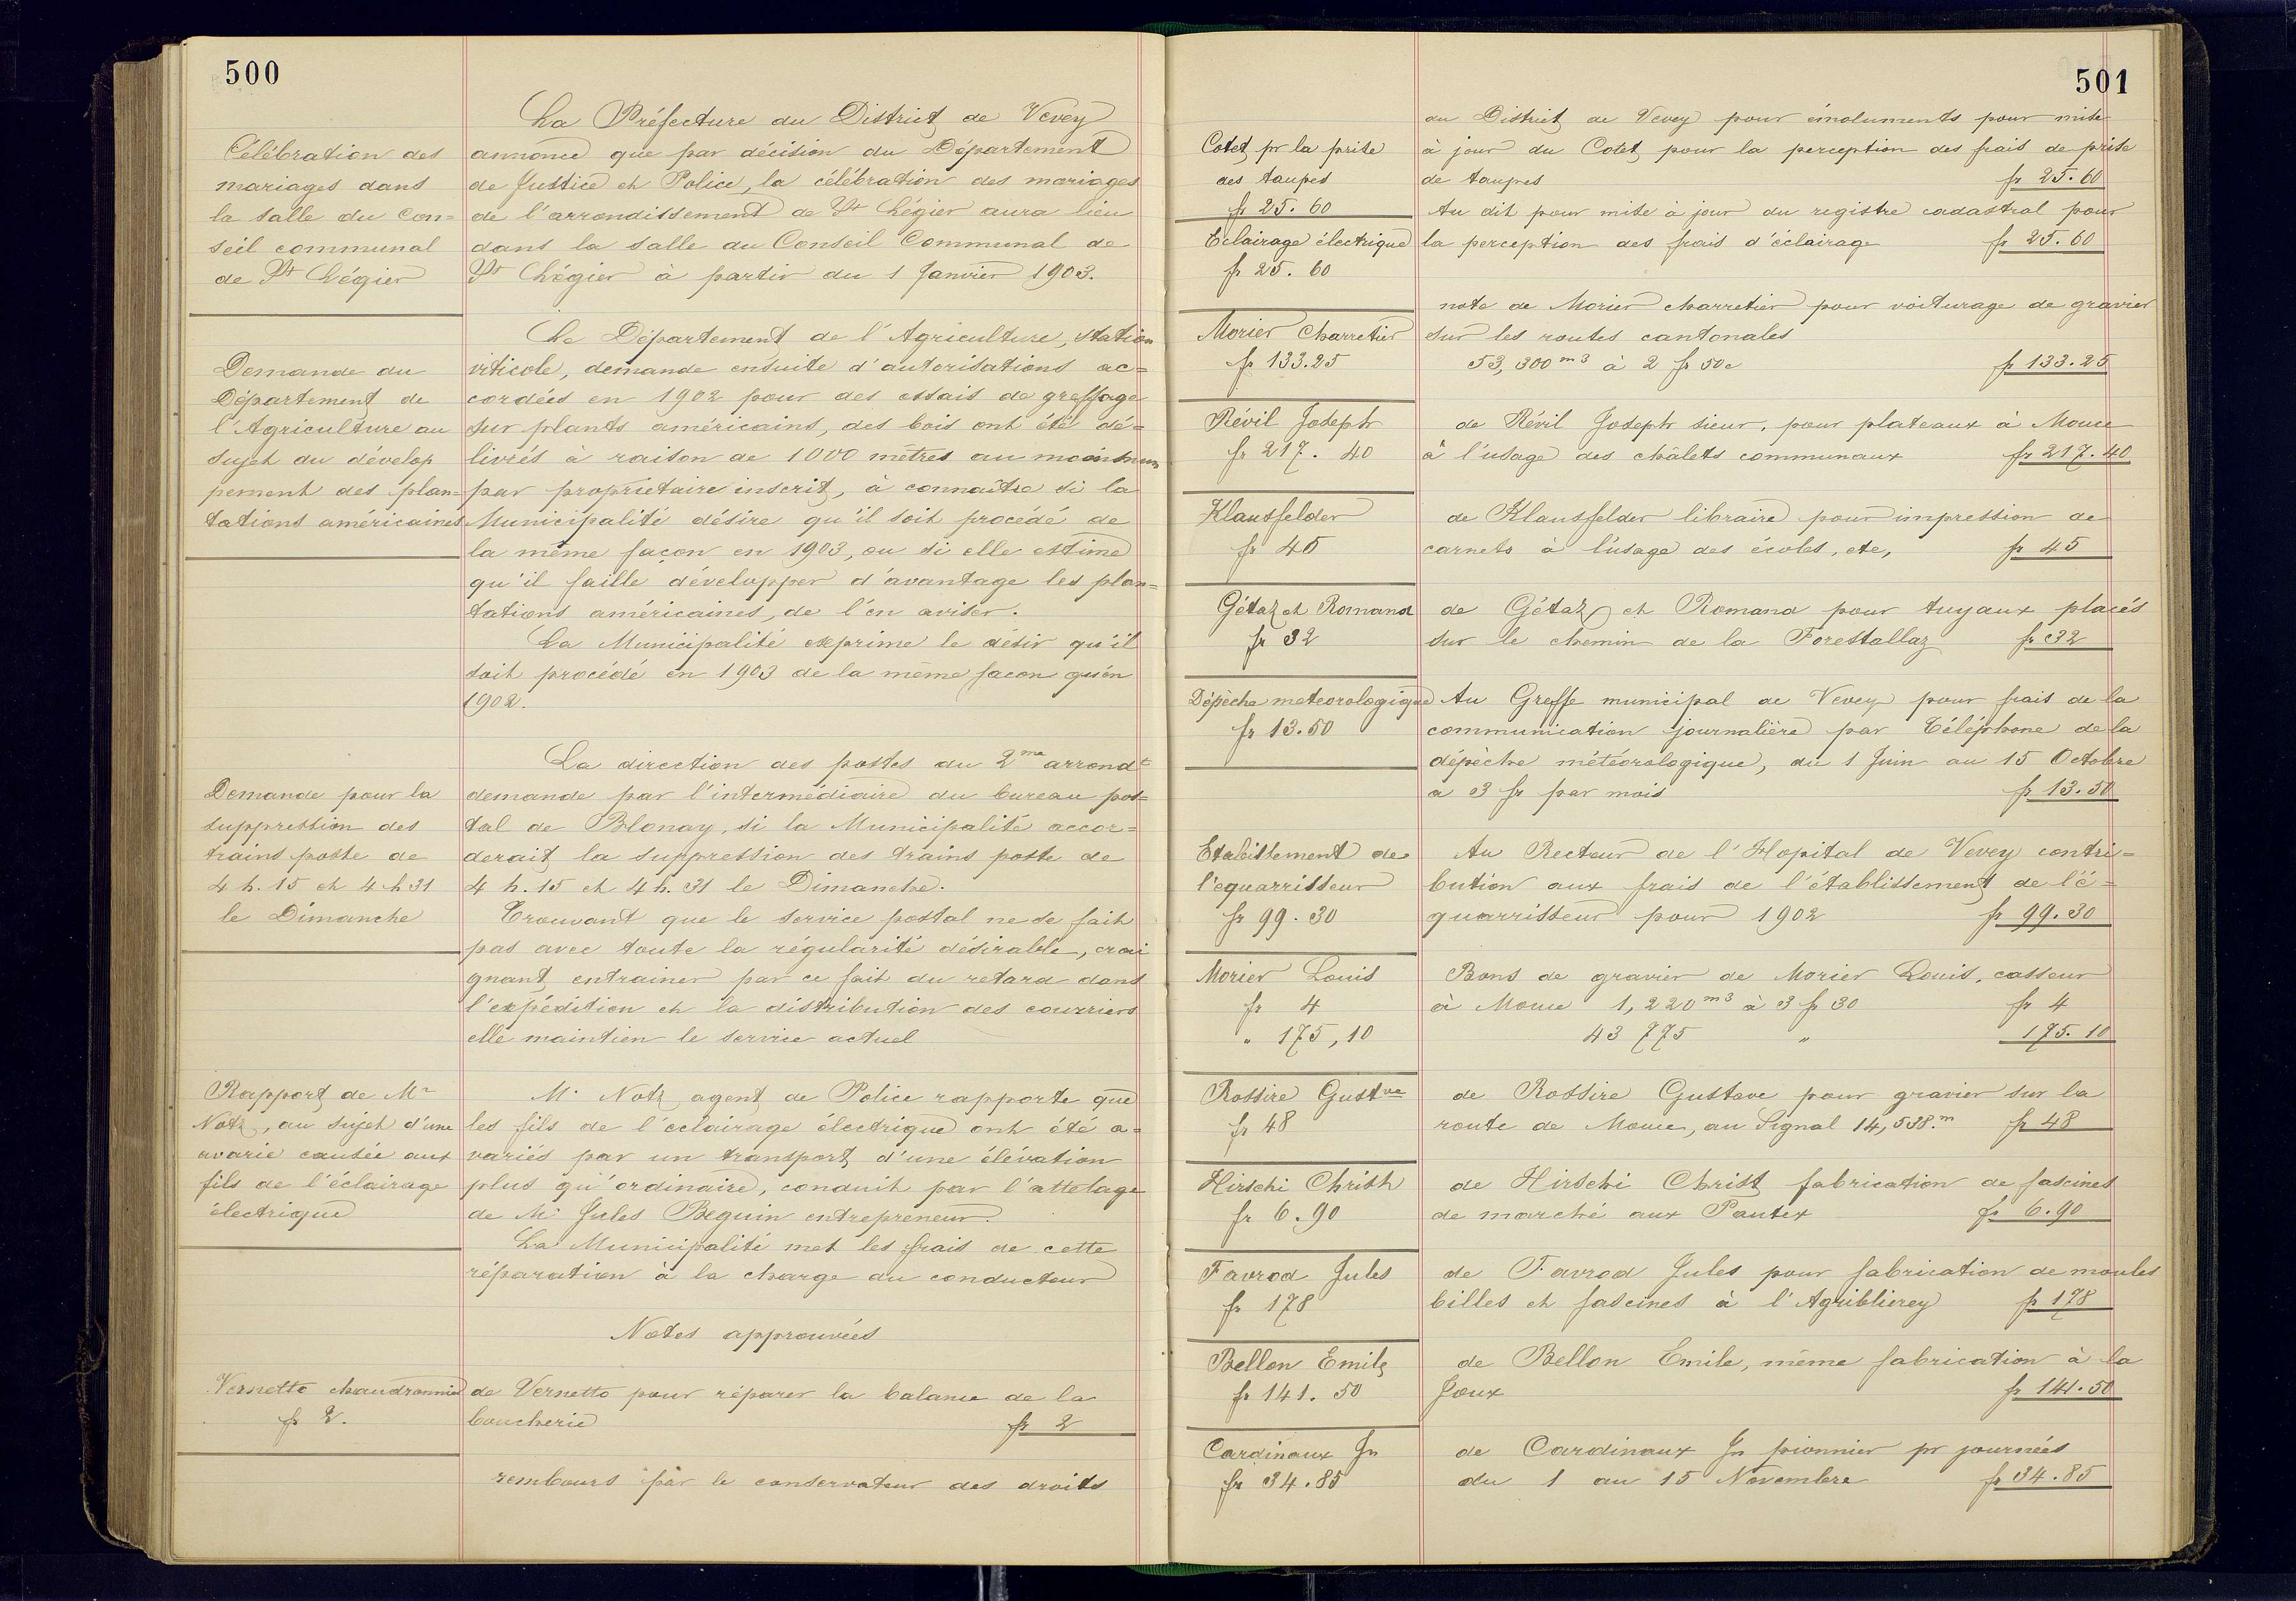 500
La Préfecture du District de Vevey
Célébration des
mariages dans
la salle du Con=
seil communal
de St Légier
annonce que par décision du Département
de Justice et Police, la célébration des mariages
de l'arrondissement de St Légier aura lieu
dans la salle du Conseil Communal de
St Légier à partir du 1 Janvier 1903.
Demande du
Département de
l'Agriculture au
sujet du dévelop
pement des plan=
tations américaines
Le Département de l'Agriculture, station
viticole, demande ensuite d'autorisations ac=
cordées en 1902 pour des essais de greffage
sur plants américains, des bois ont été dé=
livrés à raison de 1000 mètres au maximum
par propriétaire inscrit, à connaître si la
Municipalité désire qu'il soit procédé de
la même façon en 1903, ou si elle estime
qu'il faille développer d'avantage les plan=
tations américaines, de l'en aviser.
La Municipalité exprime le désir qu'il
soit procédé en 1903 de la même façon qu'en
1902.
Demande pour la
suppression des
trains poste de
4 h. 15 et 4 h 31
le Dimanche
La direction des postes du 2me arrondt
demande par l'intermédiaire du bureau pos=
tal de Blonay, si la Municipalité accor=
derait la suppression des trains poste de
4 h. 15 et 4 h. 31 le Dimanche.
Trouvant que le service postal ne se fait
pas avec toute la régularité désirable, crai
gnant entrainer par ce fait du retard dans
l'expédition et la distribution des courriers
elle maintien le service actuel
Rapport de Mr
Notz, au sujet d'une
avarie causée aux
fils de l'éclairage
électrique
Mr Notz agent de Police rapporte que
les fils de l'éclairage électrique ont été a=
variés par un transport d'une élévation
plus qu'ordinaire, conduit par l'attelage
de Mr Jules Beguin entrepreneur.
La Municipalité met les frais de cette
réparation à la charge du conducteur
Notes approuvées
Vernetto chaudronnier
fr 2.
de Vernetto pour réparer la balance de la
boucherie fr 2
rembours par le conservateur des droits
501
du District de Vevey pour émoluments pour mise
Cotet pr la prise
des taupes
fr 25.60
à jour du Cotet pour la perception des frais de prise
de taupes fr 25.60
Eclairage électrique
fr 25.60
Au dit pour mise à jour du registre cadastral pour
la perception des frais d'éclairage fr 25.60
Morier Charretier
fr 133.25
note de Morier charretier pour voiturage de gravier
sur les routes cantonales
53,300 m3 à 2 fr 50c fr 133.25
Révil Joseph
fr 217.40
de Révil Joseph sieur, pour plateaux à Mouce
à l'usage des châlets communaux fr 217.40
Klausfelder
fr 45
de Klausfelder libraire pour impression de
carnets à l'usage des écoles, etc, fr 45
Gétaz et Romand
fr 32
de Gétaz et Romand pour tuyaux placés
sur le chemin de la Forestallaz fr 32
Dépèche meteorologique
fr 13.50
Au Greffe municipal de Vevey pour frais de la
communication journalière par Téléphone de la
dépèche météorologique, du 1 Juin au 15 Octobre
à 3 fr par mois fr 13.50
Etablissement de
l'equarrisseur
fr 99.30
Au Recteur de l'Hopital de Vevey contri=
bution aux frais de l'établissement de l'é=
quarrisseur pour 1902 fr 99.30
Morier Louis
fr 4
" 175,10
Bons de gravier de Morier Louis, casseur
à Mouce 1,220 m3 à 3 fr 30 fr 4
43 775 " 175.10
Rossire Gustve
fr 48
de Rossire Gustave pour gravier sur la
route de Mouce, au Signal 14,538.m fr 48
Hirschi Christ
fr 6.90
de Hirschi Christ fabrication de fascines
de marché aux Pautex fr 6.90
Favrod Jules
fr 178
de Favrod Jules pour fabrication de moules
billes et fascines à l'Agriblierey fr 178
Bellon Emile
fr 141.50
de Bellon Emile, même fabrication à la
Joux fr 141.50
Cardinaux Jn
fr 34.85
de Cardinaux Jn pionnier pr journées
du 1 au 15 Novembre fr 34.85